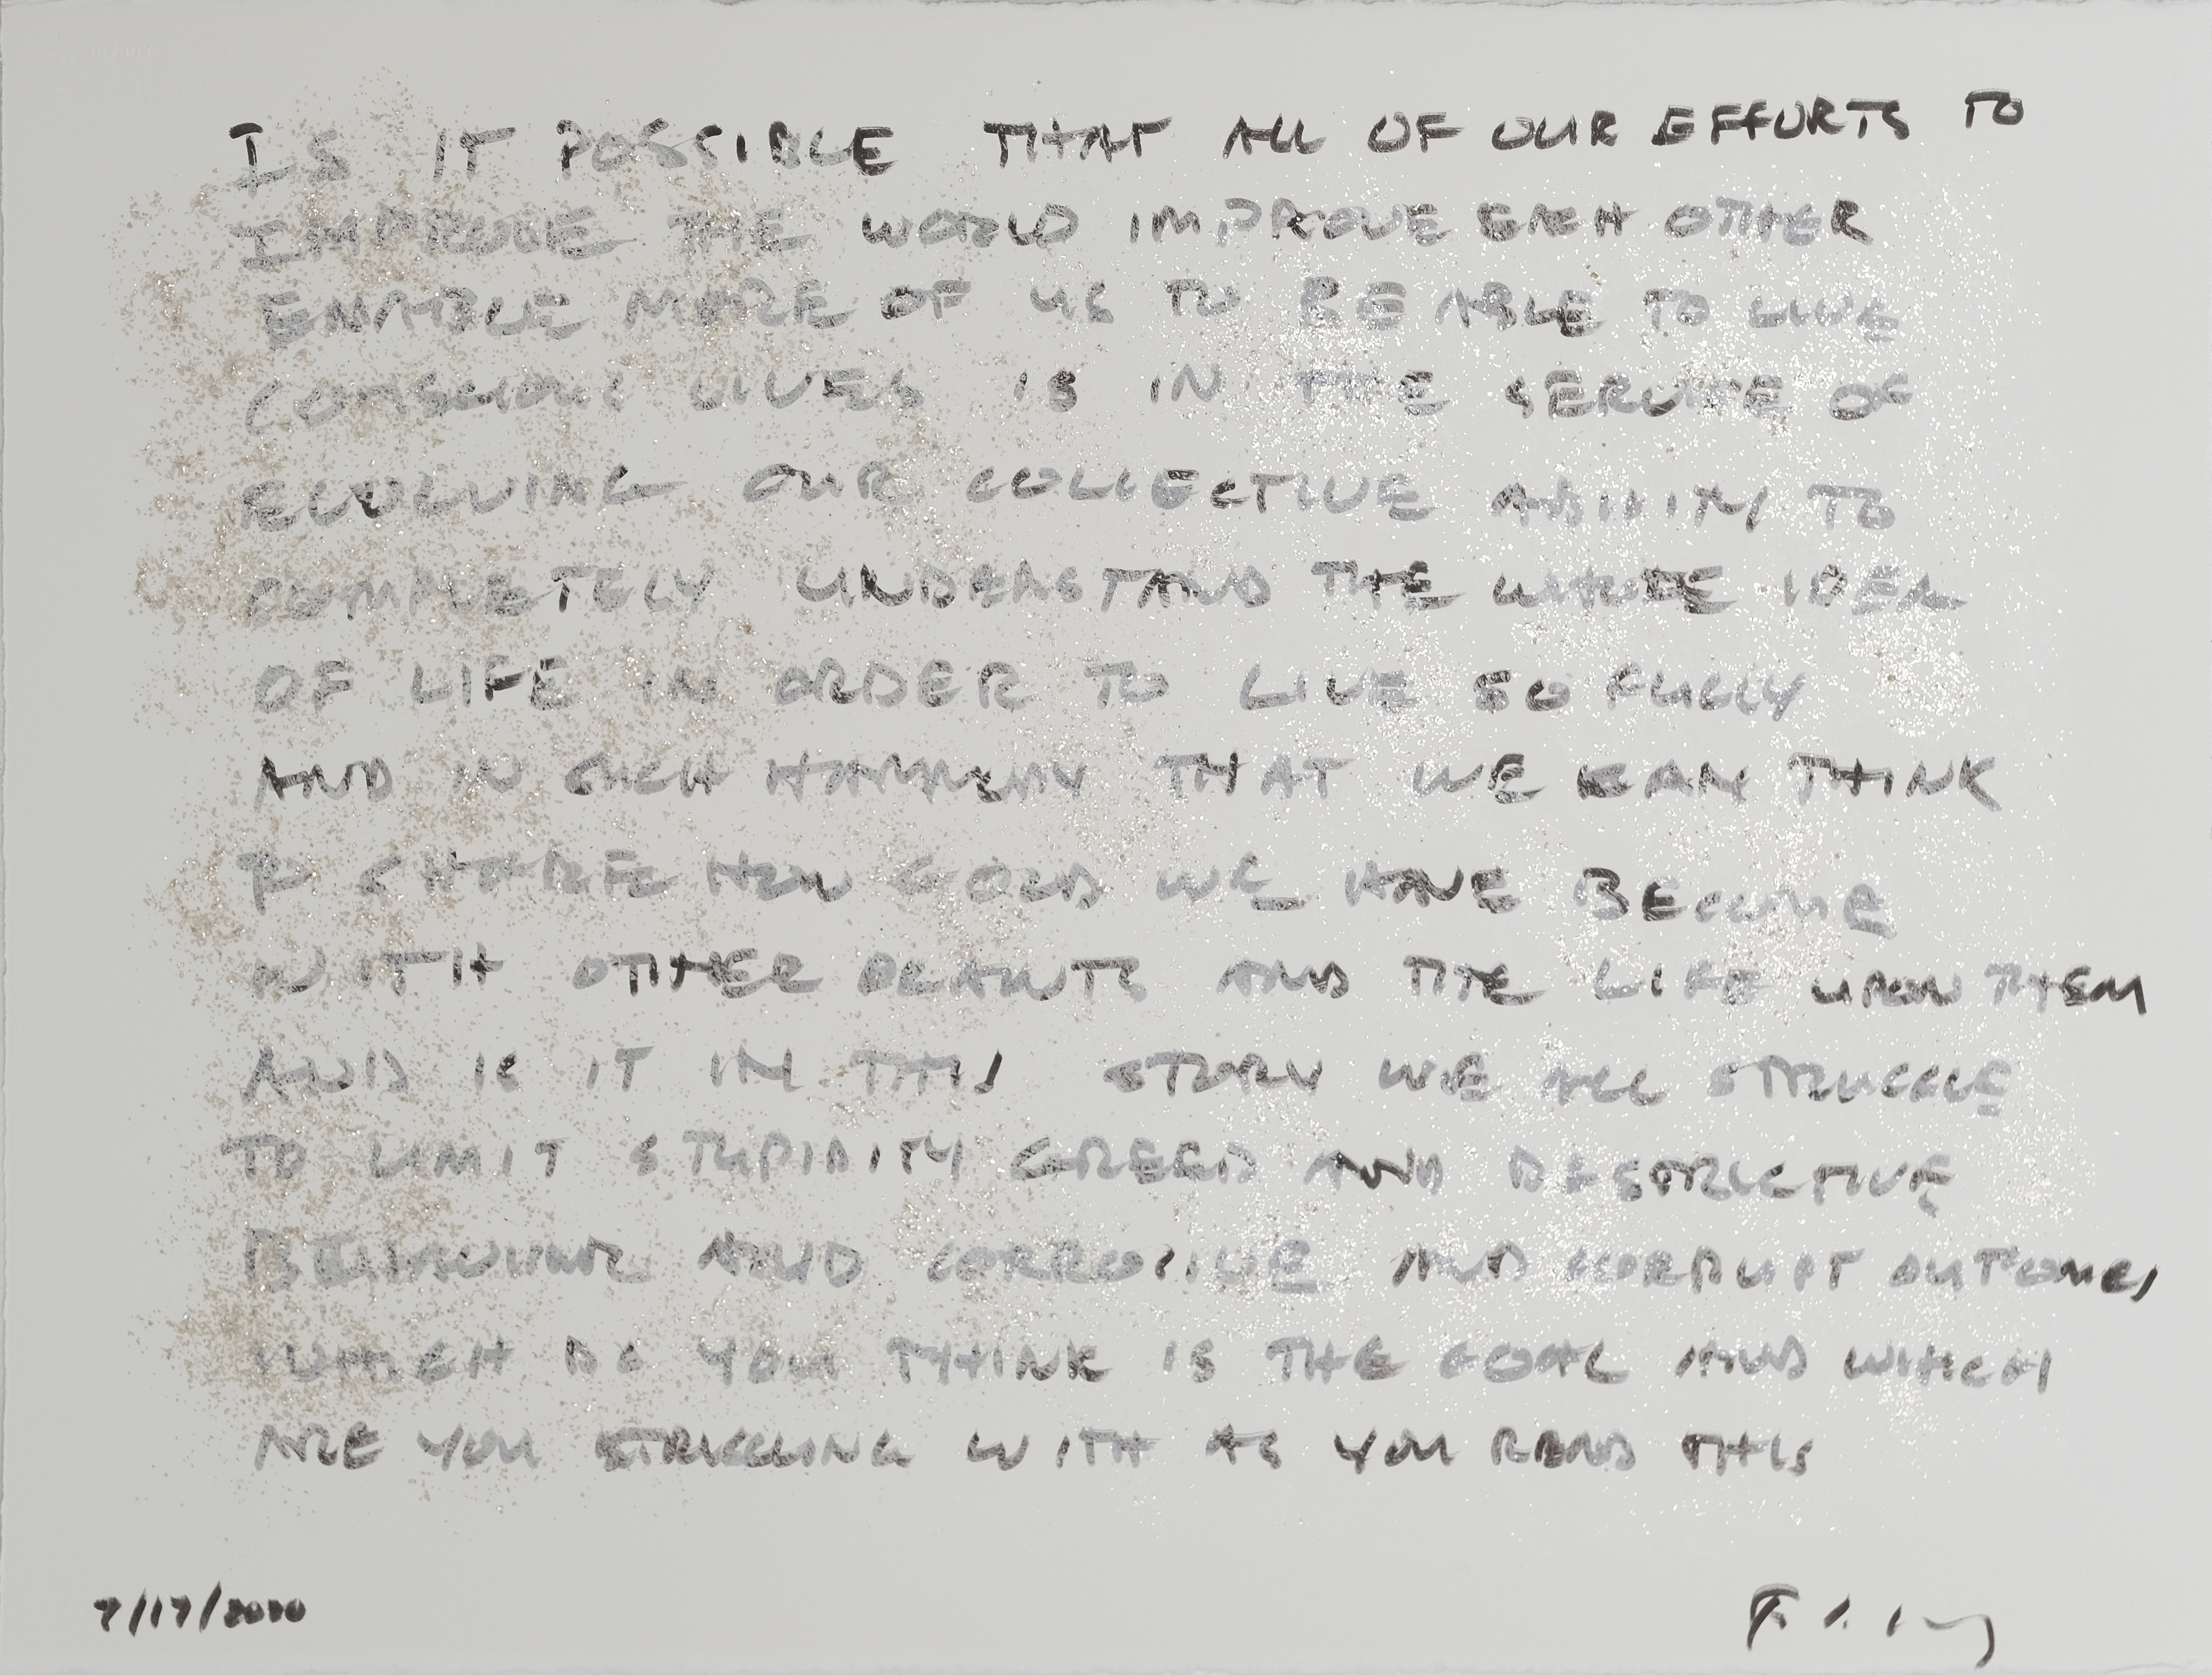 IS IT POSSIBLE THAT ALL OF OUR EFFORTS TO
IMPROVE THE WORLD IMPROVE EACH OTHER
ENABLE MORE OF US TO BE ABLE TO LIVE
CONSCIOUS LIVES IS IN THE SERVICE OF
EVOLVING OUR COLLECTIVE ABILITY TO
COMPLETELY UNDERSTAND THE WHOLE IDEA
OF LIFE IN ORDER TO LIVE SO FULLY
AND IN SUCH HARMONY THAT WE CAN THINK
TO SHARE HOW GOOD WE HAVE BECOME
WITH OTHER PLANETS AND THE LIFE UPON THEM
AND IS IT IN THIS STORY WE ALL STRUGGLE
TO LIMIT STUPIDITY GREED AND DESTRUCTIVE
BEHAVIOUR AND CORROSIVE AND CORRUPT OUTCOMES
WHICH DO YOU THINK IS THE GOAL AND WHICH
ARE YOU STRUGGLING WITH AS YOU READ THIS
7/17/2020